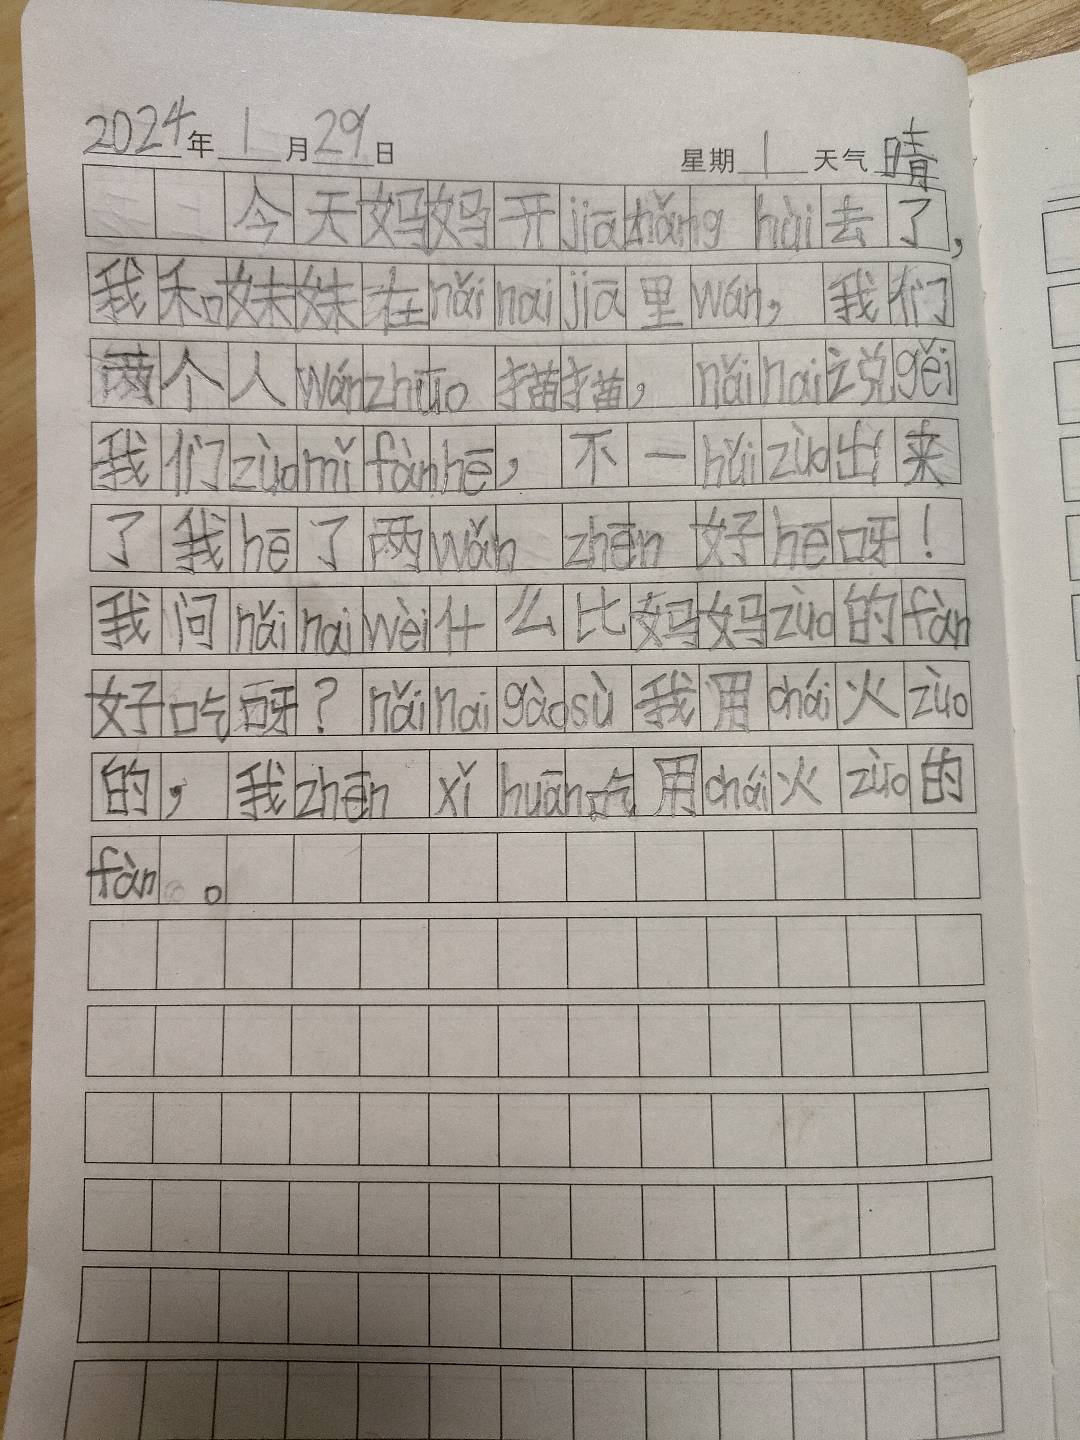 2024年1月29日 星期1 天气晴
今天妈妈开jiāzhǎng hùi去了，
我和妹妹在nǎi nai jiā里wán，我们
两个人wánzhuō描描，nǎi nai说gěi
我们zùo mǐ fàn hē，不一hǔi zùo出来
了我hē了两wǎn zhēn 好hē呀！
我问nǎi nai wèi什么比妈妈zùo的fàn
好吃呀？nǎi nai gào sù 我用chái火zùo
的，我zhēn xǐ huān吃用chái火zùo的
fàn。